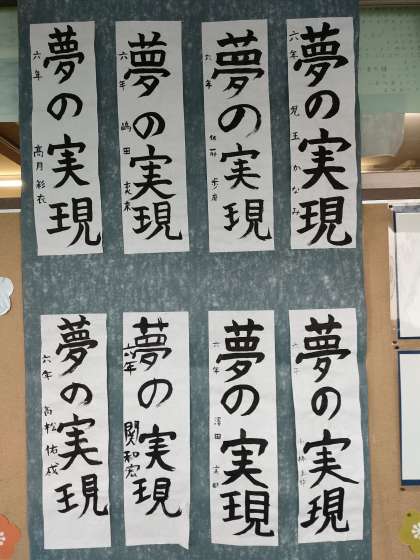 夢の実現
六年 児玉かなみ
夢の実現
六年
夢の実現
六年 嶋田
夢の実現
六年 高月彩衣
夢の実現
六年
夢の実現
六年 澤田
夢の実現
六年 関和宏
夢の実現
六年 高松佑成